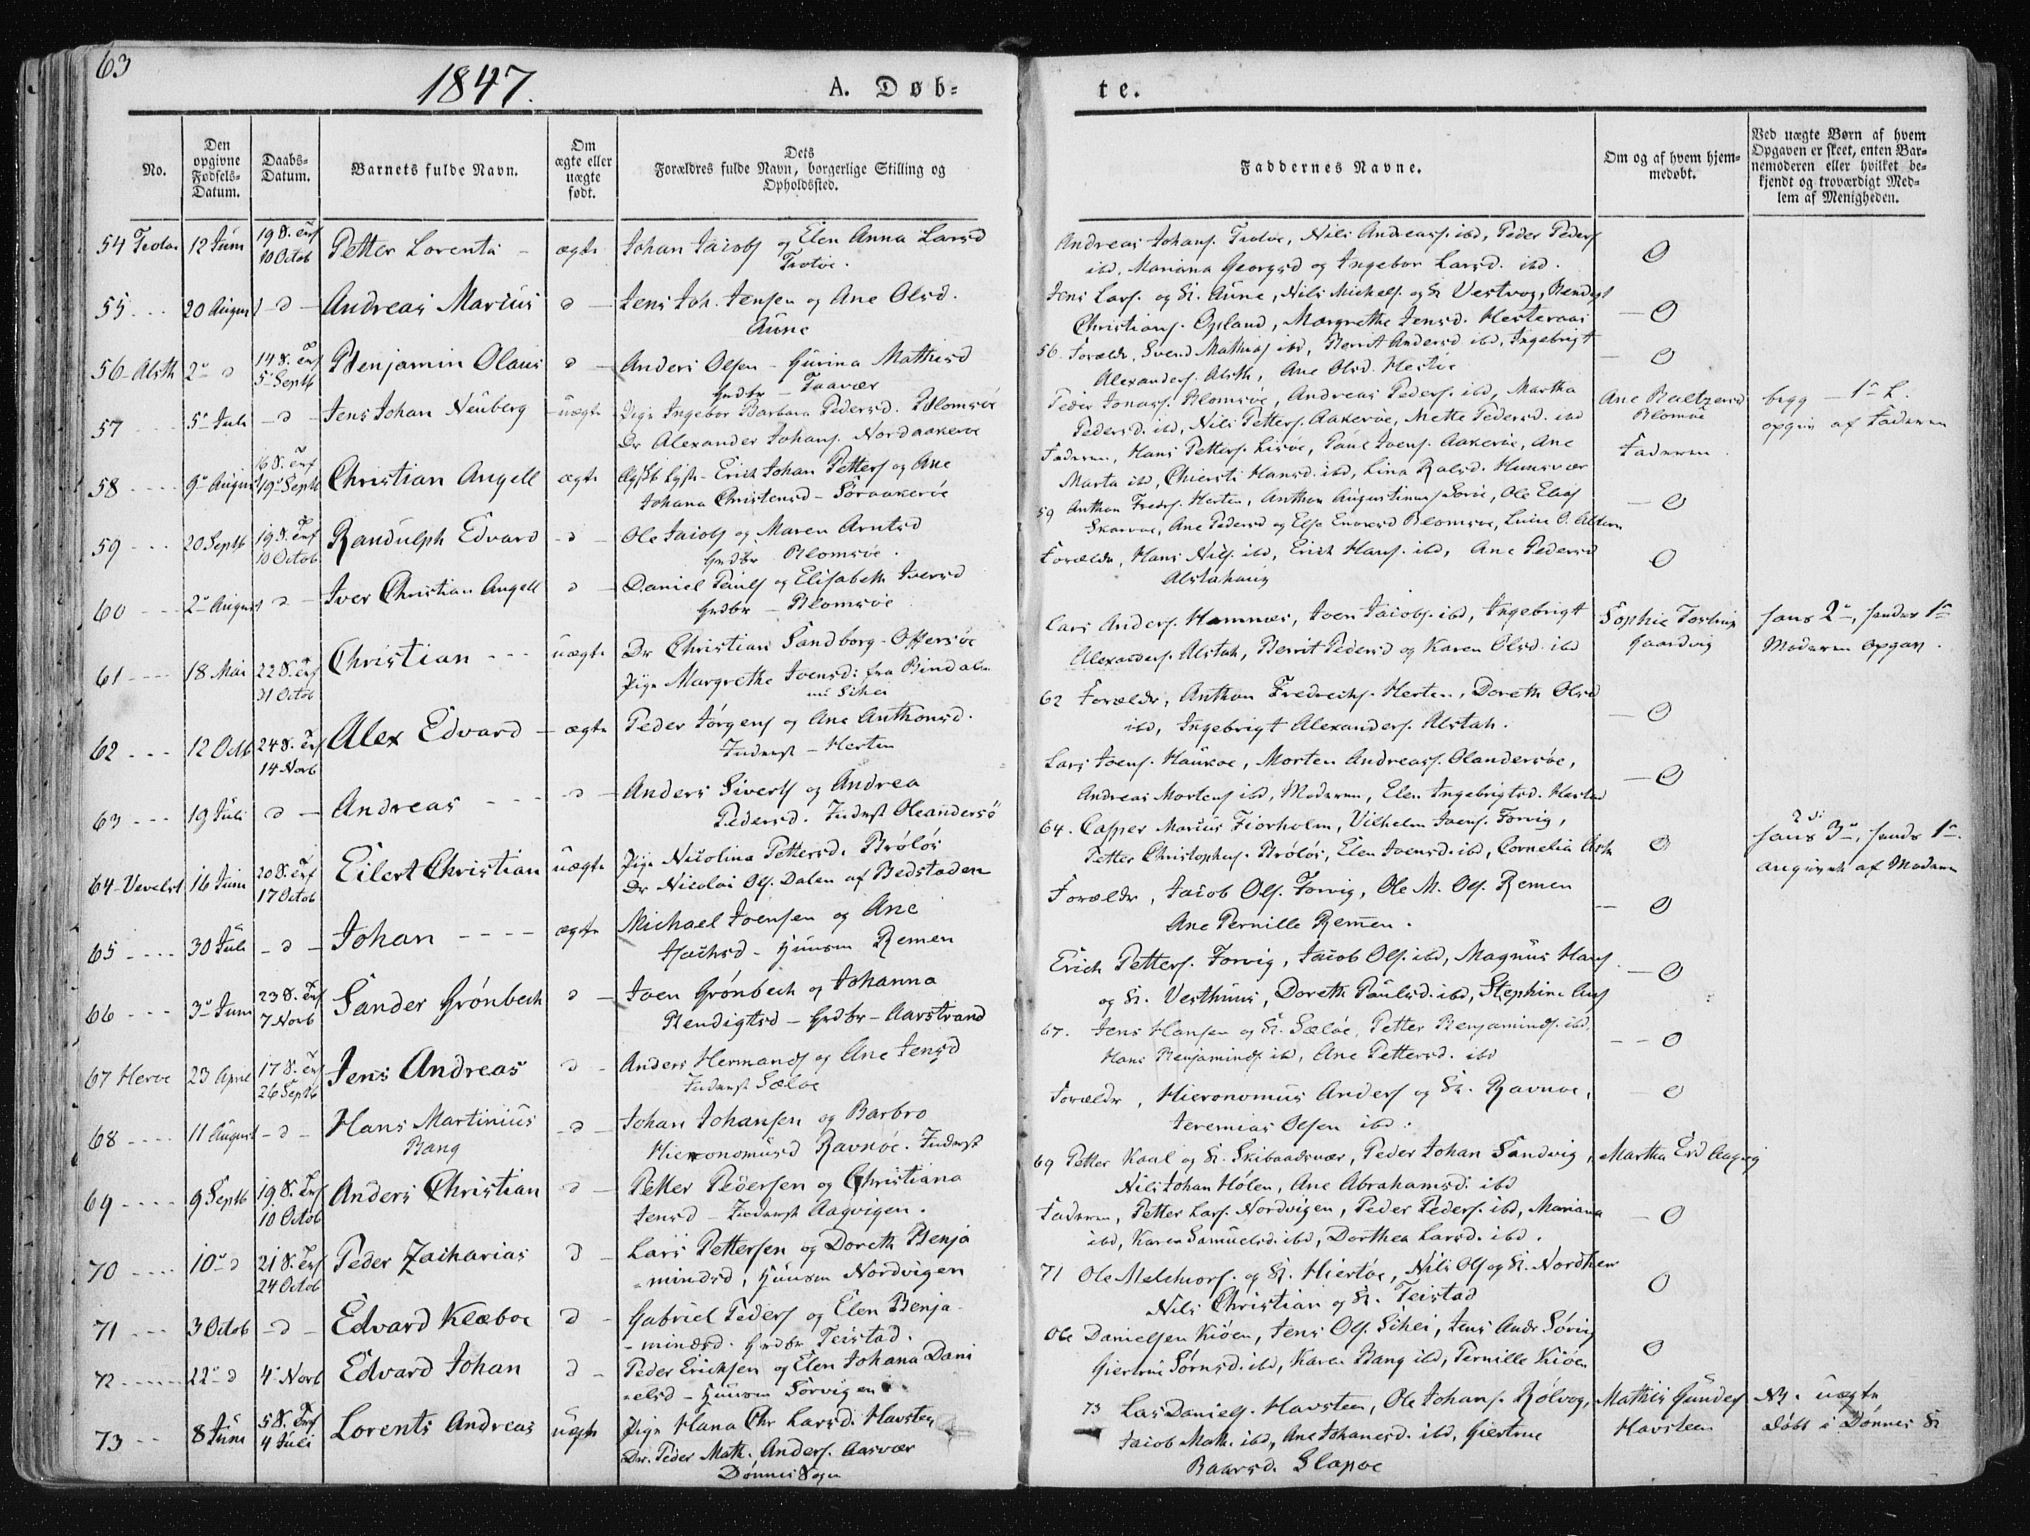 63
1847.
A. Døb-
te.
No.
Den opgivne Fødsels-Datum.
Daabs-Datum.
Barnets fulde Navn.
Om ægte eller uægte født.
Dets Forældres fulde Navn, borgerlige Stilling og Opholdssted.
Faddernes Navne.
Om og af hvem hjem-medøbt.
Ved uægte Børn af hvem Opgaven er skeet, enten Bar-nemoderen eller hvilket be-kjendt og troværdigt Med-lem af Menigheden.
54 12 Juni 10 Octob Petter Lorents - ægte Johan Jacobs og Elen Anna Larsd
Andreas Johans. Nils Andreass. ibd, Peder Peders
ibd, Mariana Georgsd og Ingebor Larsd. ibd. 0
55 20 August d Andreas Marius d Jens Joh. Jensen og Ane Olsd.
Aune
Jens Lars. og K. Aune, Nils Michels. og K Vestvog,
Christians. Opland, Margrethe Jensd. 0
56 Alsth 2 d 14 S. Trf 5 Septb Benjamin Olaus d Anders Olsen - Gurina Mathisd
Grdbr - Taavær
56 Forældr, Svend Mathias ibd, Berit Andersd ibd, Ingebrigt
Alexanders. Alsth, Ane Olsd. 0
57 5 Juli d Jens Johan Neuberg uægte Pige Ingebor Barbara Pedersd. Blomsøe
Dr Alexander Johans. Nordaakerøe
Peder Jonas. Blomsøe, Andreas Peders. ibd, Martha
Pedersd. ibd, Nils Petters. Aakerøe, Mette Pedersd. ibd
Ane Baltzersd Blomsøe
begg - 1 L.
opgiv af Faderen
58 9 August 16 S. Trf 19 Septb Christian Angell ægte Erich Johan Petters og Ane
Johana Christensd - Søraakerøe
Faderen, Hans Petters. Poul Joens. Aakerøe, Ane
Marta ibd, Chiersti Hansd. ibd, Lina
Faderen.
59 20 Septb 19 S. Trf 10 Octob Randulph Edvard d Ole Jacobs og Maren Arntsd
Grdbr - Blomsøe.
59 Anthon Freds. Herten, Anthon Ole
Ane Pedersd og Else Blomsøe, 0
60 2 August d Iver Christian Angell d Daniel Pauls og Elisabeth Iversd
Grdbr - Blomsøe
Forældr, Hans Nils. ibd, Erich Hans. ibd, Ane Pedersd
Alstahaug 0
61 18 Mai 22 S. Trf 31 Octob Christian - - - uægte Dr Christian Sandborg - Offersøe
Pige Margrethe Joensd: fra Bindalen
Lars Anders. Hamnæs, Joen Jacobs. ibd, Ingebrigt
Alexanders. Alstah, Berrit Pedersd og Karen Olsd. ibd
Sophie
hans 2, hendes 1
Moderen opgav.
62 12 Octb 24 S. Trf 14 Novb Alex Edvard - ægte Peder Jørgens og Ane Anthonsd.
Inderst - Herten
62 Forældr, Anthon Fredrichs. Herten, Doreth Olsd
ibd, Ingebrigt Alexanders. Alstah. 0
63 19 Juli d Andreas - - - d Anders Siverts og Andrea
Pedersd. Inderst Oleandersø
Lars Joens. Morten Andreass. Olandersøe,
Andreas Mortens ibd, Moderen, Elen Ingebrigtsd. 0
64 Vevelst 16 Juni 20 S. Trf 17 Octob Eilert Christian uægte Pige Nicolina Pettersd. Brøløs
Dr Nicolai Ols. Dalen af Bedstaden
64. Casper Marius Fiorholm, Vilhelm Joens. Forvig,
Petter Christophers. Brøløs, Elen Joensd. ibd, Cornelia 0
hans 3, hendes 1.
angivet af Moderen
65 30 Juli d Johan - - - ægte Michael Joensen og Ane
Huusm Remen
Forældr, Jacob Ols. Forvig, Ole M. Ols. Remen
Ane Pernille Remen. 0
66 3 Juni 23 S. Trf 7 Novb Sander Grønbech d Joen Grønbech og Johanna
Bendigtsd - Grdbr - Aarstrand
Erich Petters. Forvig, Jacob Ols. ibd, Magnus Hans
og K. Vesthuus, Doreth Paulsd. ibd, Stephine 0
67 Herøe 23 April 17 S. Trf 26 Septb Jens Andreas d Anders Hermands og Ane Jensd
Inderst Sæløe
67. Jens Hansen og K. Sæløe, Petter Benjamins. ibd.
Hans Benjamins. ibd, Ane Pettersd. ibd 0
68 11 August d Hans Martinius
Bang d Johan Johansen og Barbro
Hieronomusd Ravnøe. Inderst
Forældr, Hieronomus Anders og K. Ravnøe,
Jeremias Olsen ibd. 0
69 9 Septb 19 S. Trf 10 Octob Anders Christian d Petter Pedersen og Christiana
Jensd - Inderst Aagvigen.
69 Petter Kaal og K. Skibaadsvær, Peder Johan Sandvig,
Nils Johan Holen, Ane Abrahamsd. ibd
Martha
70 10 d 21 S. Trf 24 Octob Peder Zacharias d Lars Pettersen og Doreth Benja
mindsd, Huusm Nordvigen
Faderen, Petter Lars. Nordvigen, Peder Peders. ibd, Mariana
ibd, Karen Samuelsd. ibd, Dorthea Larsd. ibd. 0
71 3 Octob d Edvard Klæboe d Gabriel Peders og Elen Benja-
minsd. Grdbr Teistad.
71 Ole Melchiors. og K. Hiertøe, Nils Ols og K.
Nils Christian og K. Teistad 0
72 22 d 4 Novb Edvard Johan d Peder Erichsen og Elen Johana Dani
elsd - Huusm Sørvigen
Ole Danielsen Kiøen, Jens Ols. Jens Andr Sørvig
Giertrui Sørnsd. ibd, Karen Bang ibd, Pernille Kiøen 0
73 8 Juni 5 S. Trf 4 Juli Lorents Andreas uægte Pige Hana Chr Larsd. Havsteen
Dr. Peder Math. Anders. Aasvær
Dønnes Sogn
73 Lars Daniels. Havsteen, Ole Johans. Rølvog,
Jacob Math. ibd, Ane Johanesd. ibd, Giertrue
Baarsd. Slapøe
Mathis Gunders Havsteen
NB. uægte
Døbt i Dønnes K